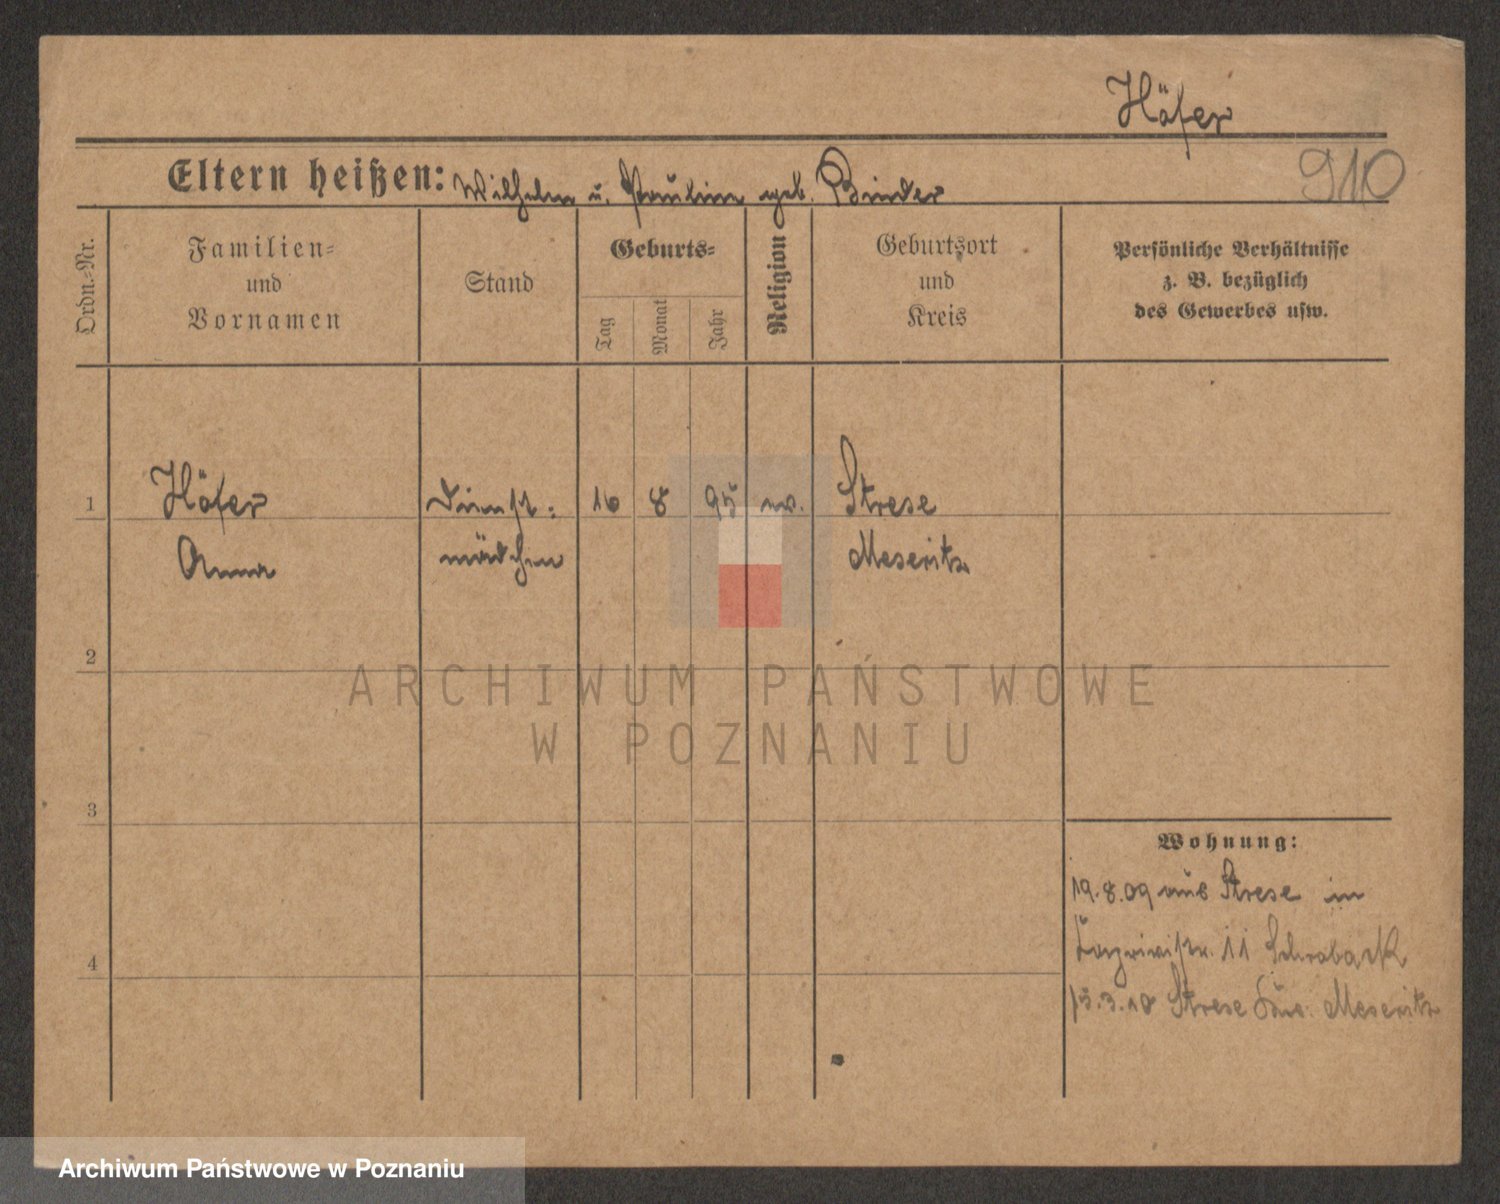 Höfer
910
Eltern heißen: Wilhelm u. Paulin geb. Binder
Ordn.-Nr.
Familien-
und
Vornamen
Stand
Geburts-
Tag
Monat
Jahr
Religion
Geburtsort
und
Kreis
Persönliche Verhältnisse
z. B. bezüglich
des Gewerbes usw.
1 Höfer Dienst- 16 8 95 ev. Strese
Anna mädchen Meseritz
2
3
4
Wohnung:
19.8.09 aus Strese in
11 Schwaback
15.3.10 Strese Meseritz
ARCHIWUM PAŃSTWOWE
W POZNANIU
Archiwum Państwowe w Poznaniu